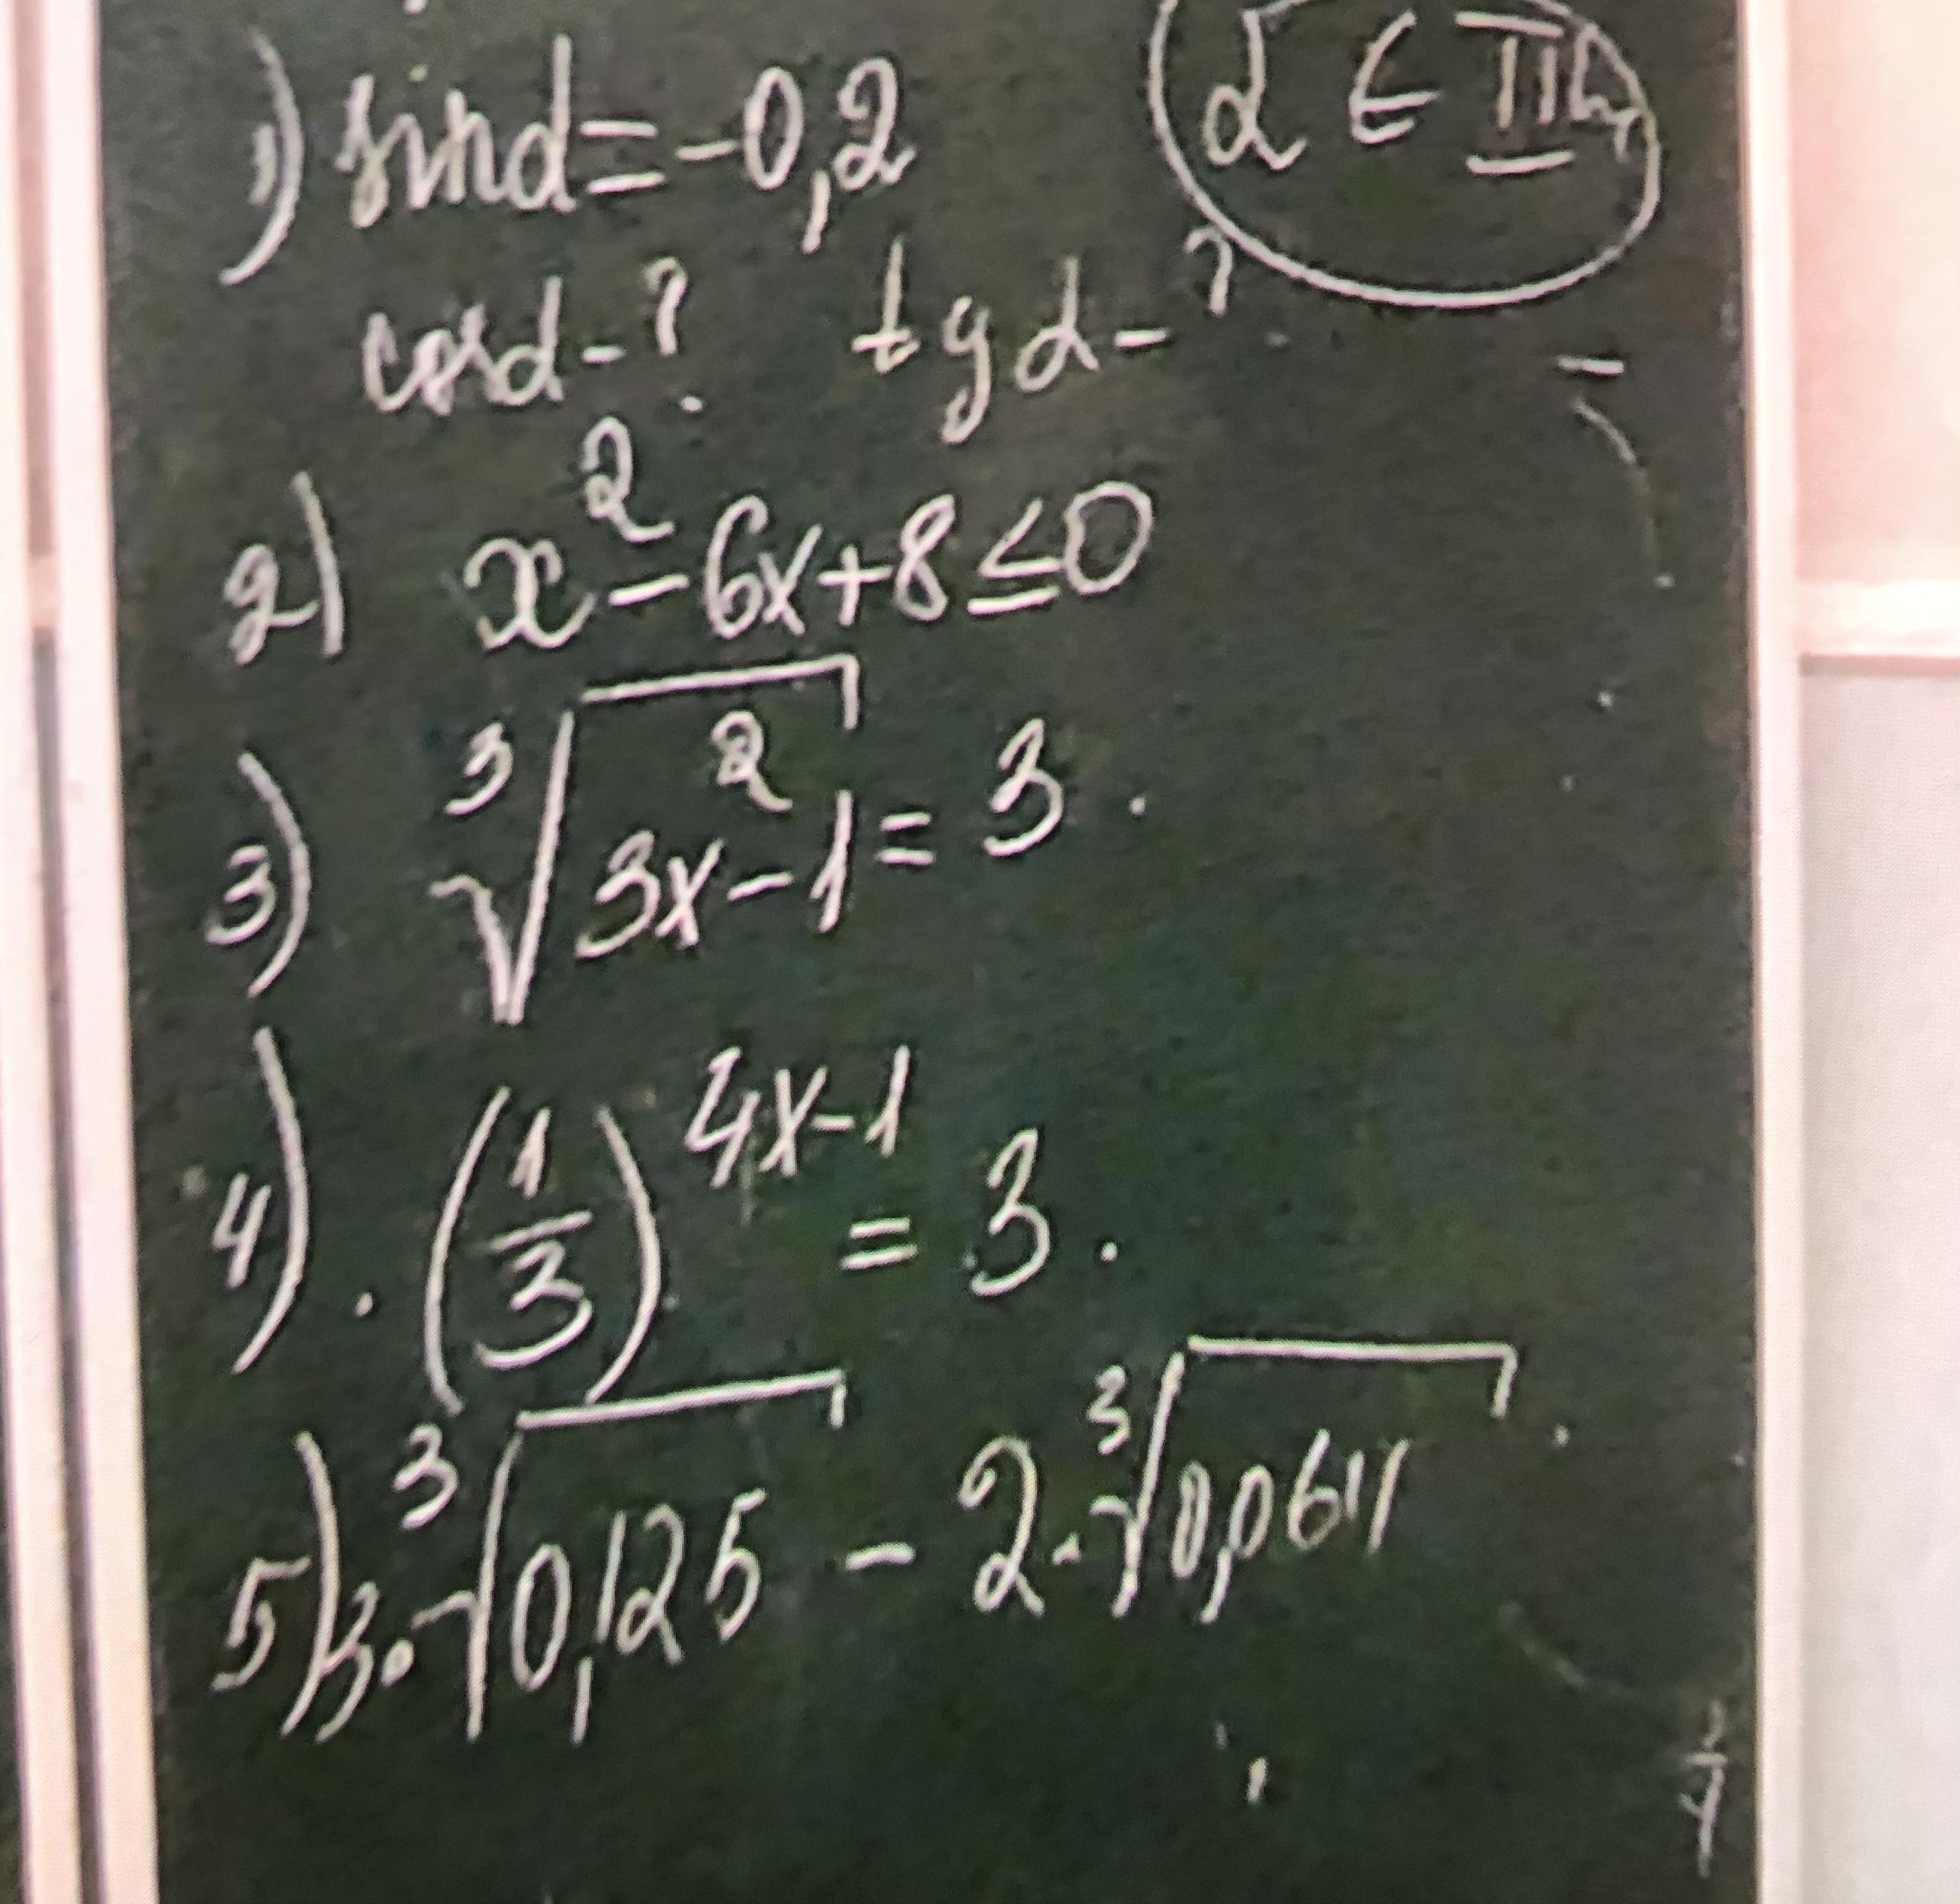 1) sinα = -0,2 α ∈ III ч
cosα - ? tgα - ?
2) x² - 6x + 8 ≤ 0
3) ∛(3x² - 1) = 3.
4). (1/3)^(4x-1) = 3.
5) 3·∛0,125 - 2·∛0,064